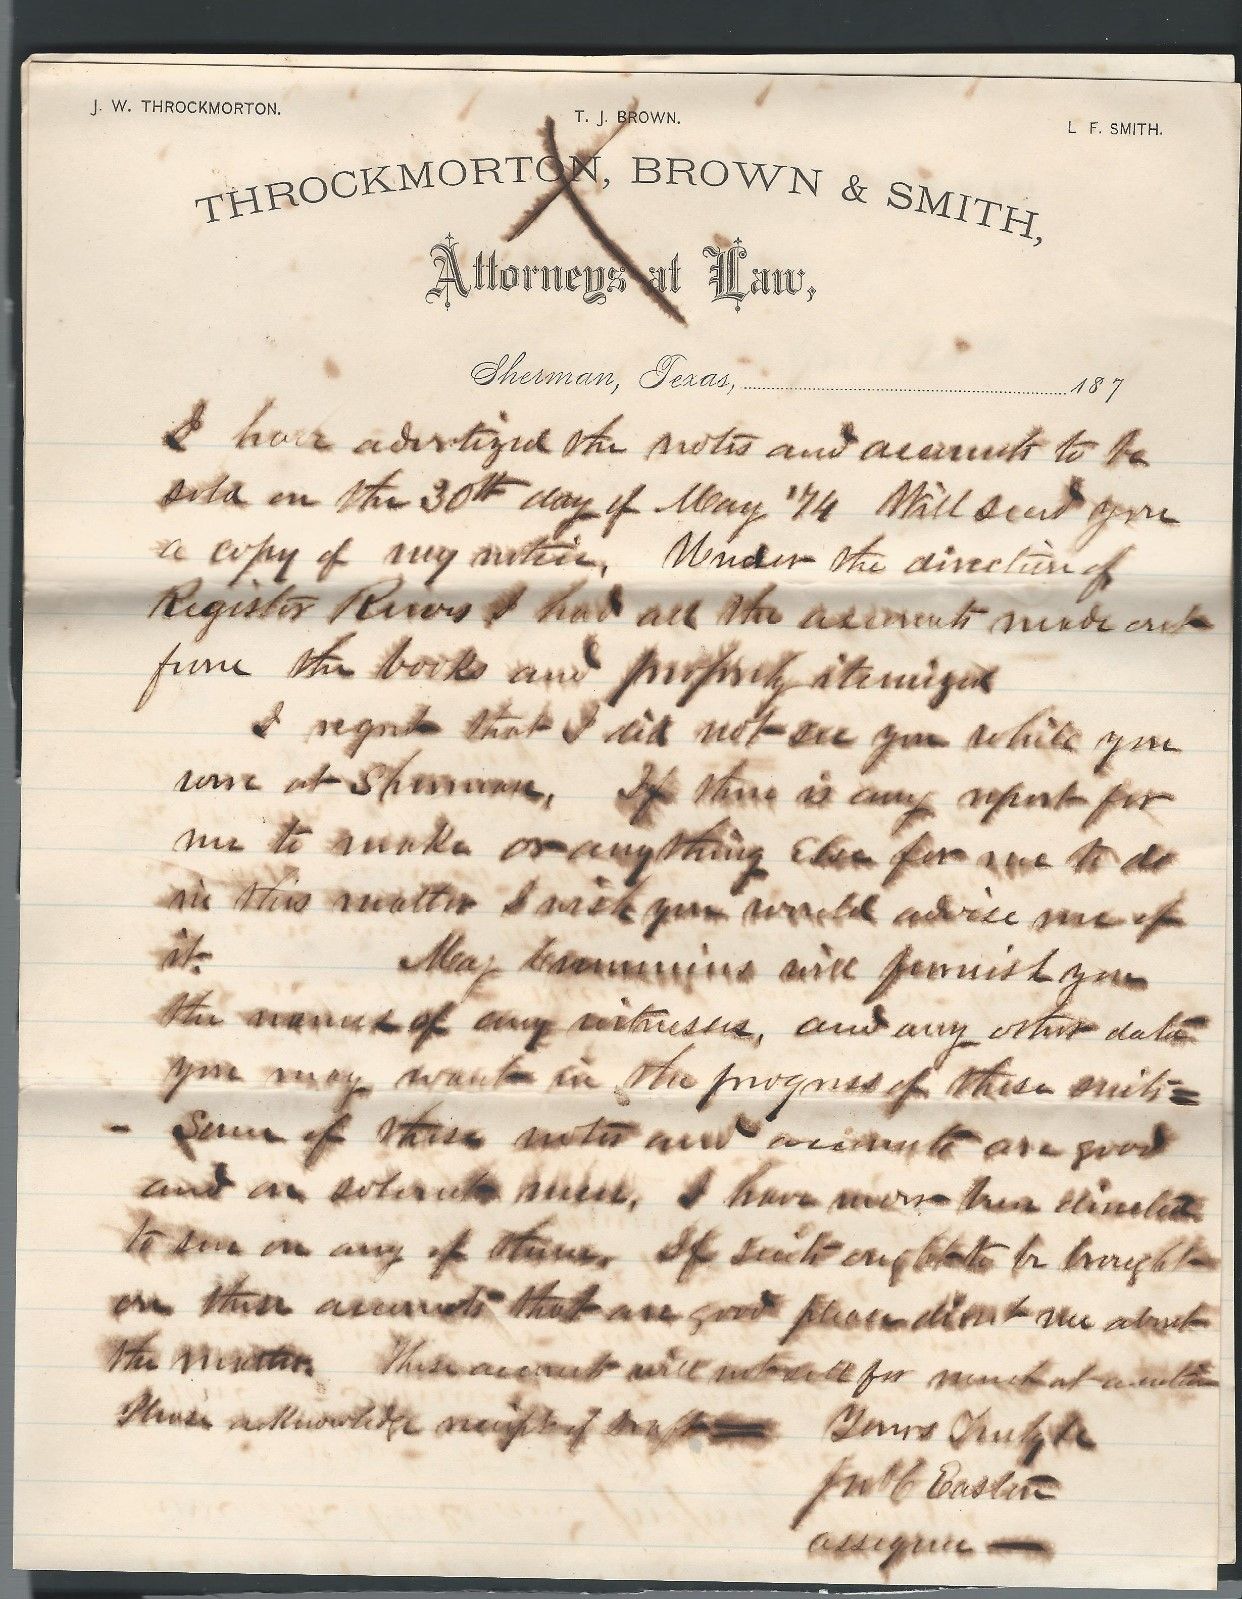 J. W. THROCKMORTON.
T. J. BROWN.
L F. SMITH.
THROCKMORTON, BROWN & SMITH,
Attorneys at Law,
Sherman, Texas, 187
I have advertized the notes and accounts to be
sold on the 30th day of May '74 Will send you
a copy of my notice. Under the direction of
Register I had all the accounts made out
from the books and properly itemized
I regret that I did not see you while you
were at Sherman, If there is any report for
me to make or anything else for me to do
in this matter I wish you would advise me of
it. Maj will furnish you
the names of any witnesses, and any other data
you may want in the progress of these suits =
- Some of these notes and accounts are good
and on solvent men, I have never been directed
to sue on any of them. If suit ought to be brought
on these accounts that are good please direct me about
the matter. These account will not sell for much at auction
Please acknowledge receipt of draft = Yours Truly
Jno C Easton
assignee —